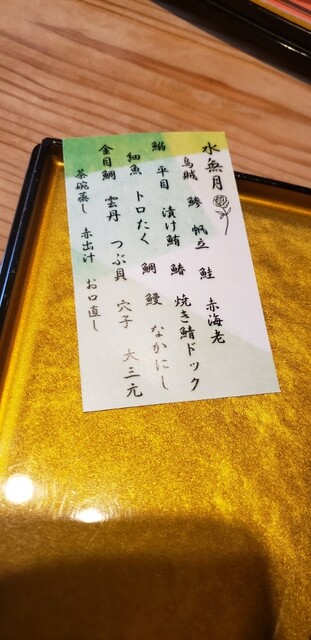 水無月
烏賊 鯵 帆立 鮭 赤海老
鰯 平目 漬け鮪 鰆 焼き鯖ドック
細魚 トロたく 鯛 鰻 なかにし
金目鯛 雲丹 つぶ貝 穴子 大三元
茶碗蒸し 赤出汁 お口直し